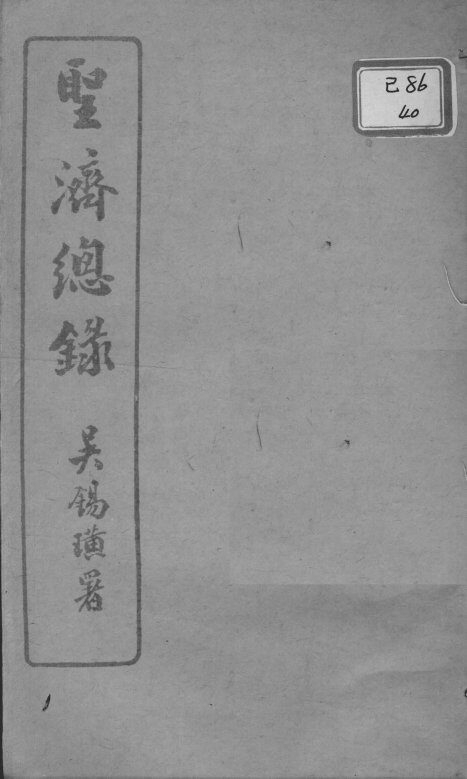 聖濟總錄
吳錫璜署
己86
40